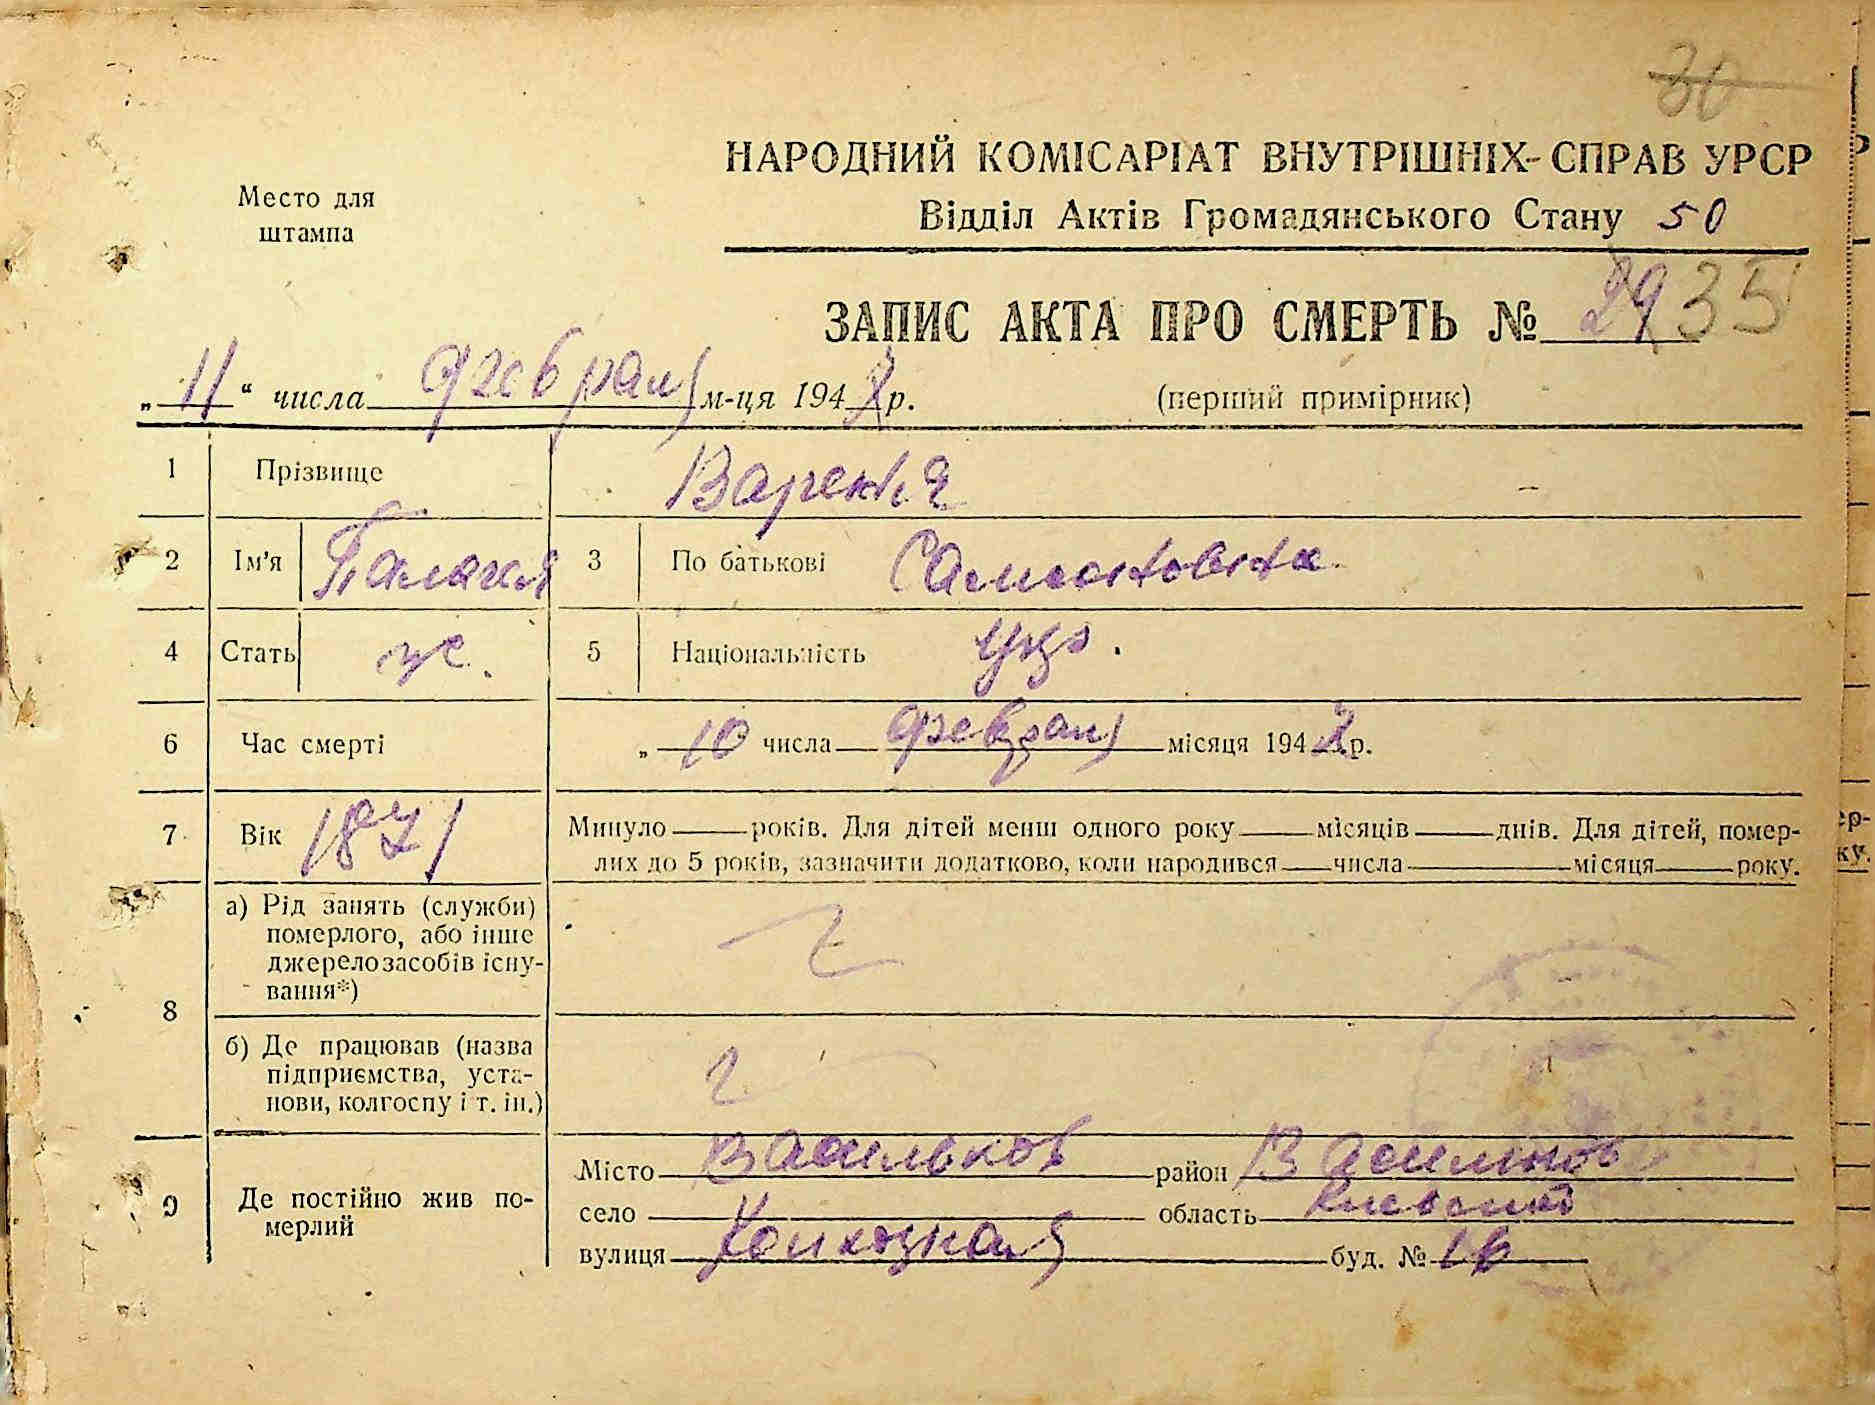 30
НАРОДНИЙ КОМІСАРІАТ ВНУТРІШНІХ-СПРАВ УРСР
Место для
штампа
Відділ Актів Громадянського Стану 50
ЗАПИС АКТА ПРО СМЕРТЬ № 29 35
„11“ числа февраля м-ця 1942 р. (перший примірник)
1 Прізвище
2 Ім'я Палагея 3 По батькові Самсоновна.
4 Стать ж. 5 Національність укр.
6 Час смерті „ 10 числа февраля місяця 1942 р.
7 Вік 1871 Минуло років. Для дітей менш одного року місяців днів. Для дітей, помер-
лих до 5 років, зазначити додатково, коли народився числа місяця року.
8 а) Рід занять (служби)
померлого, або інше
джерело засобів існу-
вання*)
б) Де працював (назва
підприємства, уста-
нови, колгоспу і т. ін.)
9 Де постійно жив по-
мерлий
Місто Васильков район Васильков
село область Киевский
вулиця буд. № 16